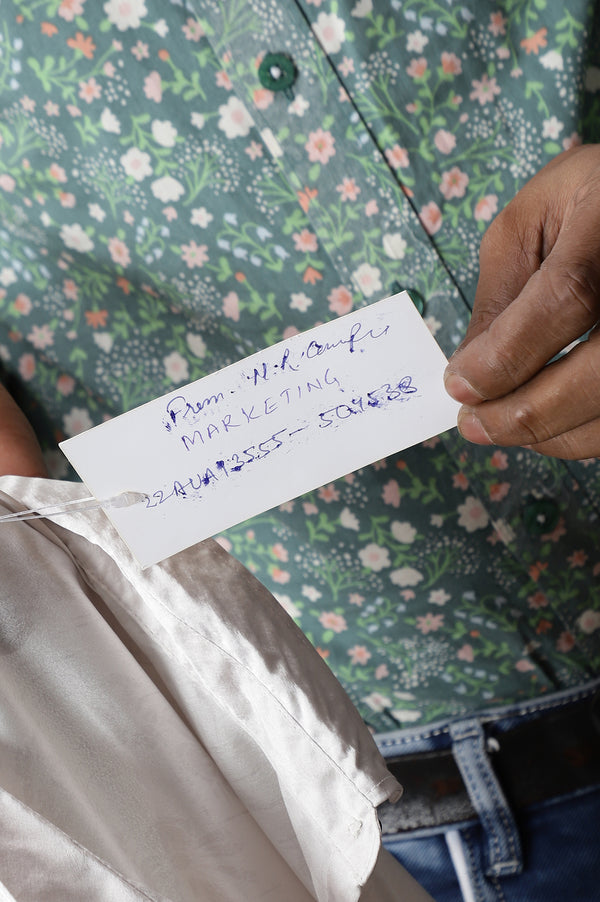 From. N.R.
MARKETING
22AUA13555 - 509538